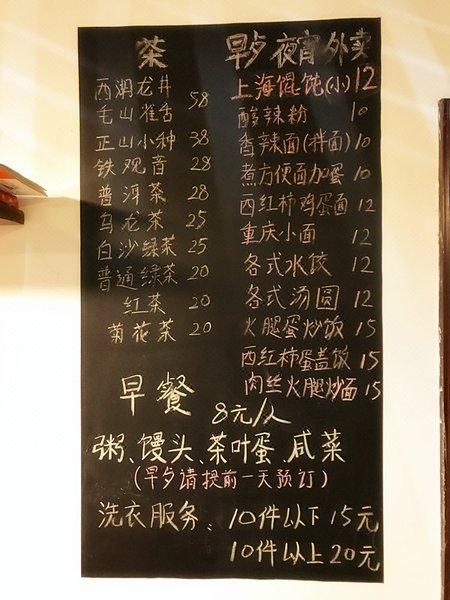 茶
西湖龙井
毛山雀舌 58
正山小种 38
铁观音 28
普洱茶 28
乌龙茶 25
白沙绿茶 25
普通绿茶 20
红茶 20
菊花茶 20
早歺 夜宵 外卖
上海馄饨(小) 12
酸辣粉 10
香辣面(拌面) 10
煮方便面加蛋 10
西红柿鸡蛋面 12
重庆小面 12
各式水饺 12
各式汤圆 12
火腿蛋炒饭 15
西红柿蛋盖饭 15
肉丝火腿炒面 15
早餐 8元/人
粥、馒头、茶叶蛋、咸菜
(早歺请提前一天预订)
洗衣服务、10件以下15元
10件以上20元